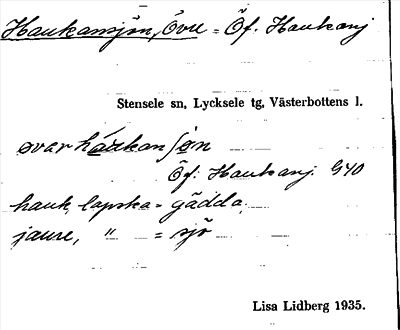 Haukansjön, Övre = Öf. Haukansj
Stensele sn, Lycksele tg, Västerbottens l.
Öf. Haukansj. G40
hauk, lapska = gädda
jaure, " = sjö
Lisa Lidberg 1935.